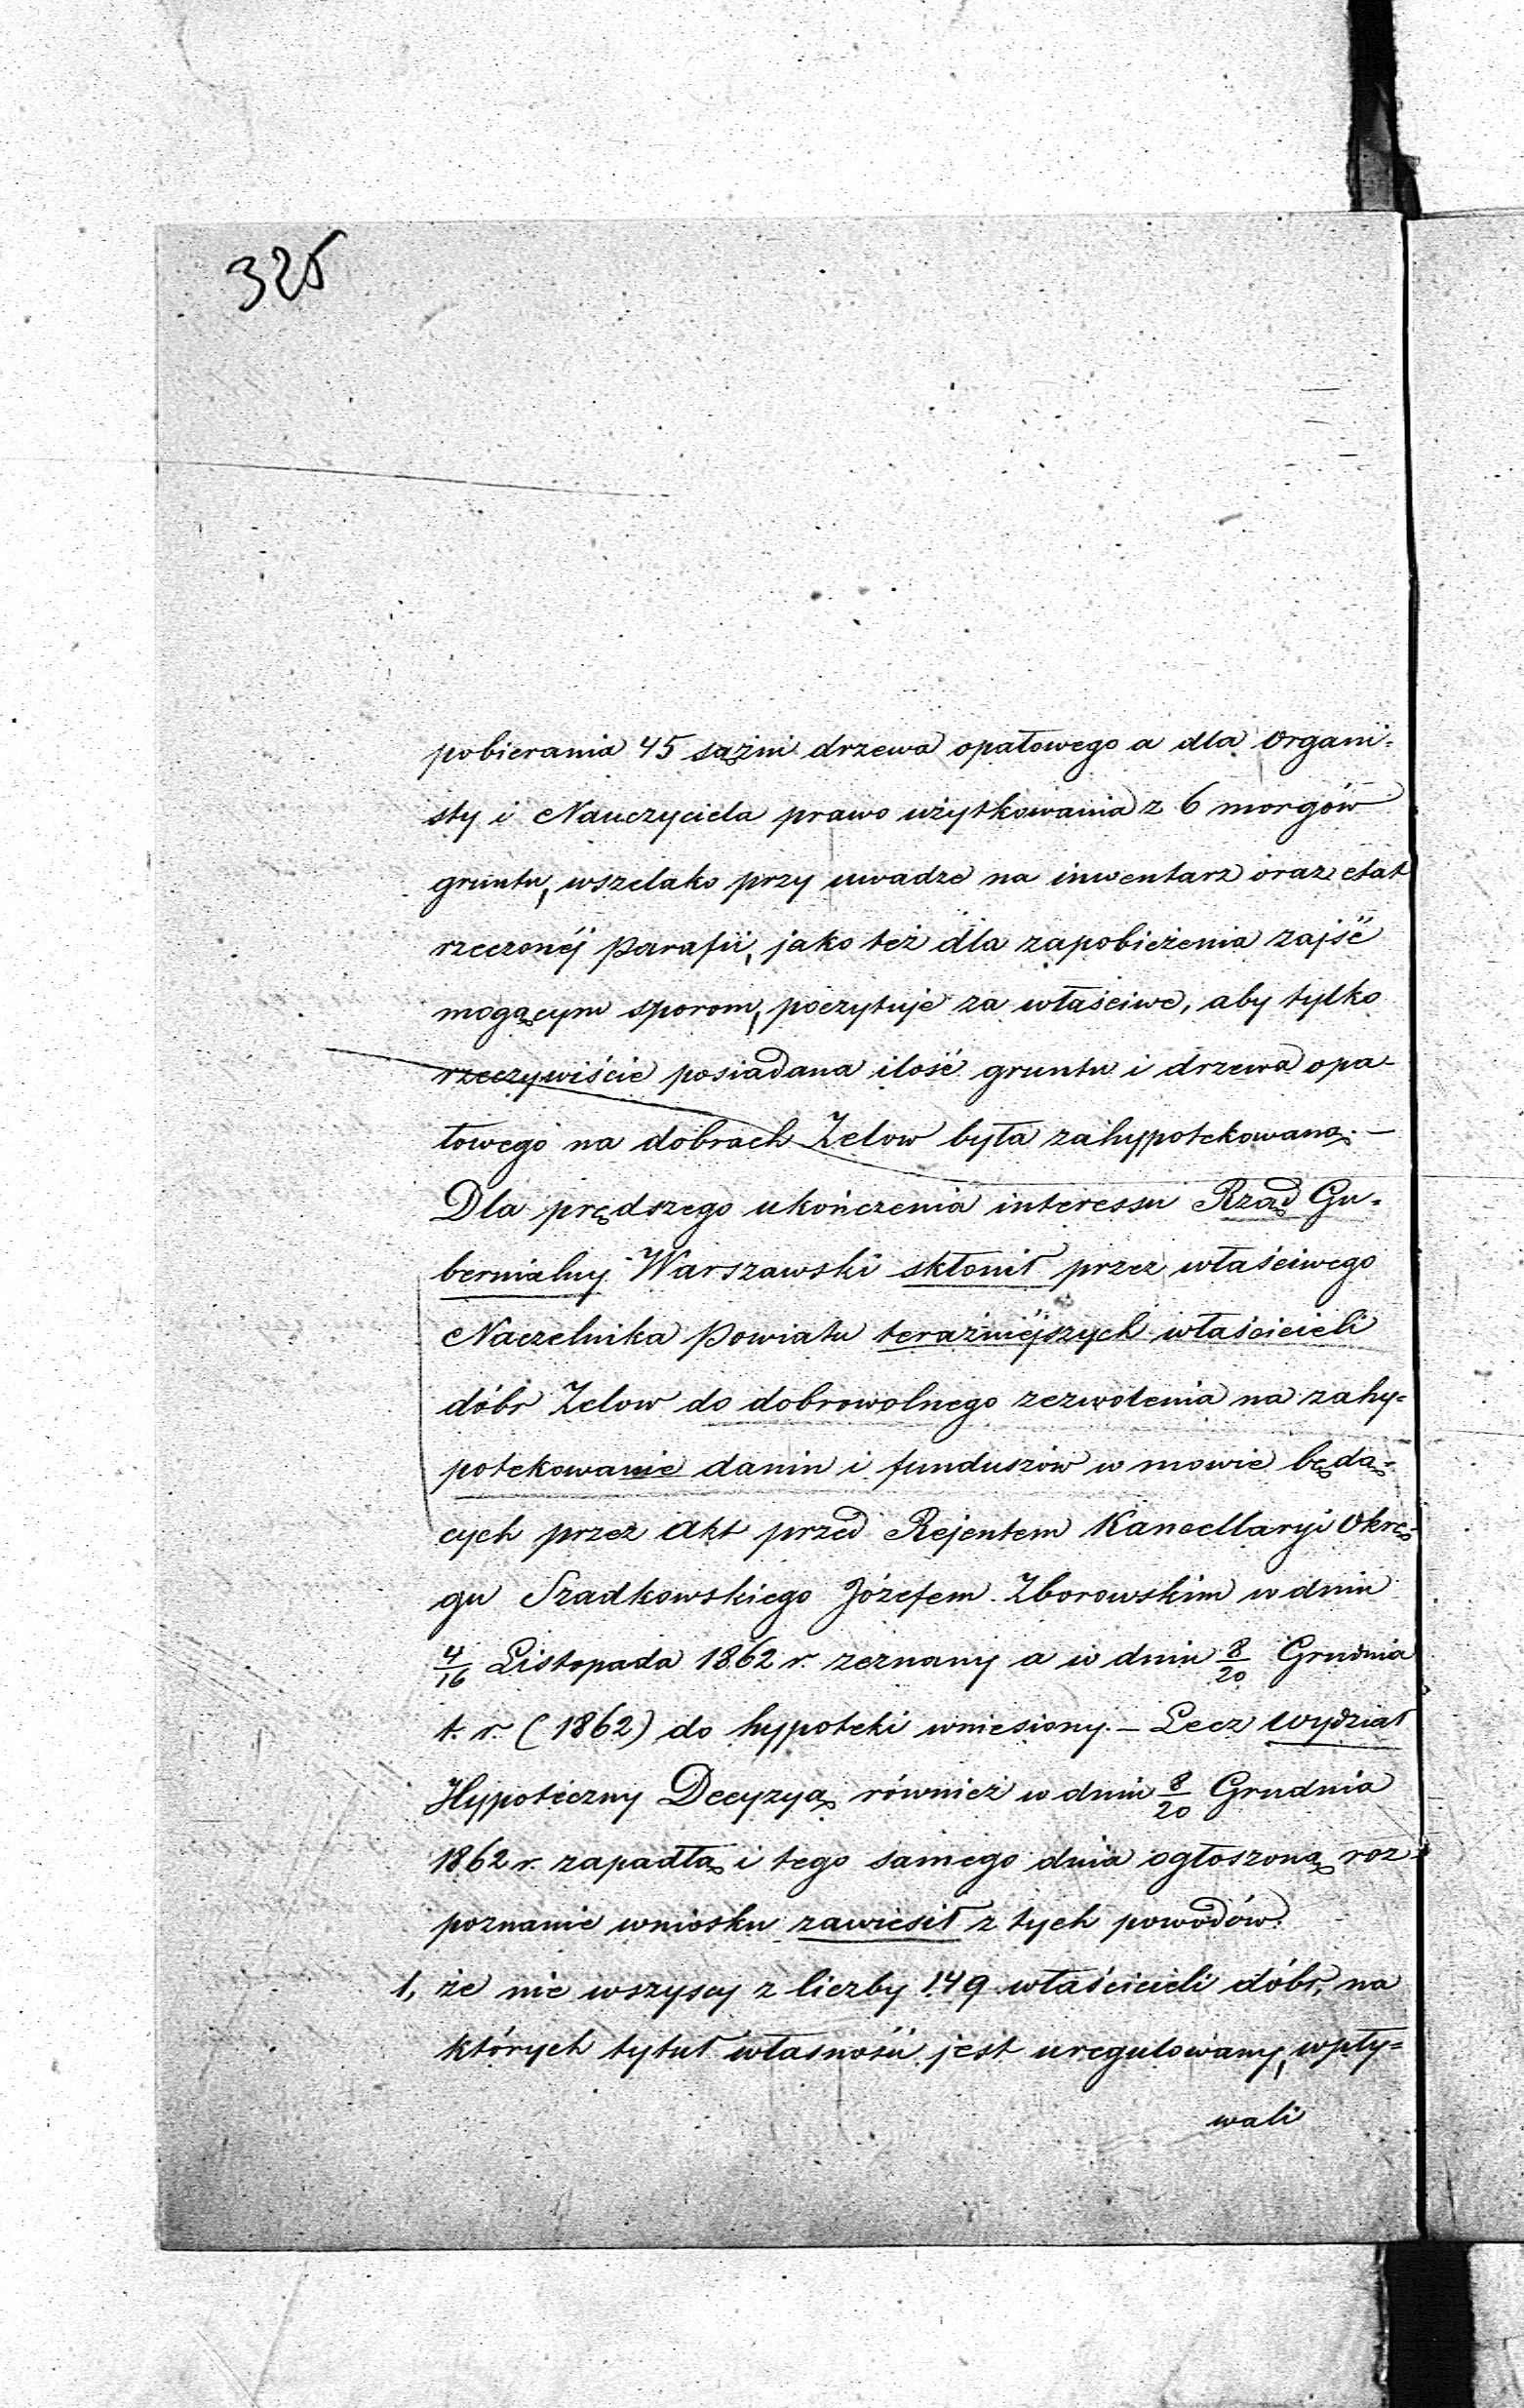 325
pobierania 45 sążni drzewa opałowego a dla Organi-
sty i Nauczyciela prawo użytkowania z 6 morgów
gruntu, wszelako przy uwadze na inwentarz oraz etat
rzeczonéj Parafii, jako też dla zapobieżenia zajść
mogącym sporom, poczytuje za właściwe, aby tylko
rzeczywiście posiadana ilość gruntu i drzewa opa-
łowego na dobrach Zelow była zahypotekowaną. —
Dla prędszego ukończenia interessu Rząd Gu-
bernialny Warszawski skłonił przez właściwego
Naczelnika Powiatu teraźniéjszych właścicieli
dóbr Zelow do dobrowolnego zezwolenia na zahy-
potekowanie danin i funduszów w mowie będą-
cych przez Akt przed Rejentem Kancellaryi Okrę-
gu Szadkowskiego Józefem Zborowskim w dniu
4/16 Listopada 1862 r. zeznany a w dniu 8/20 Grudnia
t. r. (1862) do hypoteki wniesiony. — Lecz Wydział
Hypoteczny Decyzyą również w dniu 8/20 Grudnia
1862 r. zapadłą i tego samego dnia ogłoszoną roz-
poznanie wniosku zawiesił z tych powodów:
1, że nie wszyscy z liczby 149 właścicieli dóbr, na
których tytuł własności jest uregulowany, wpły-
wali